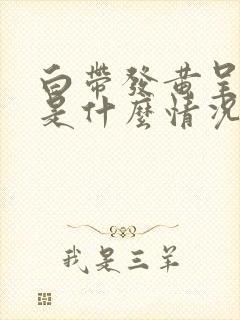 白帶發黃呈
是什麼情況
我是三羊